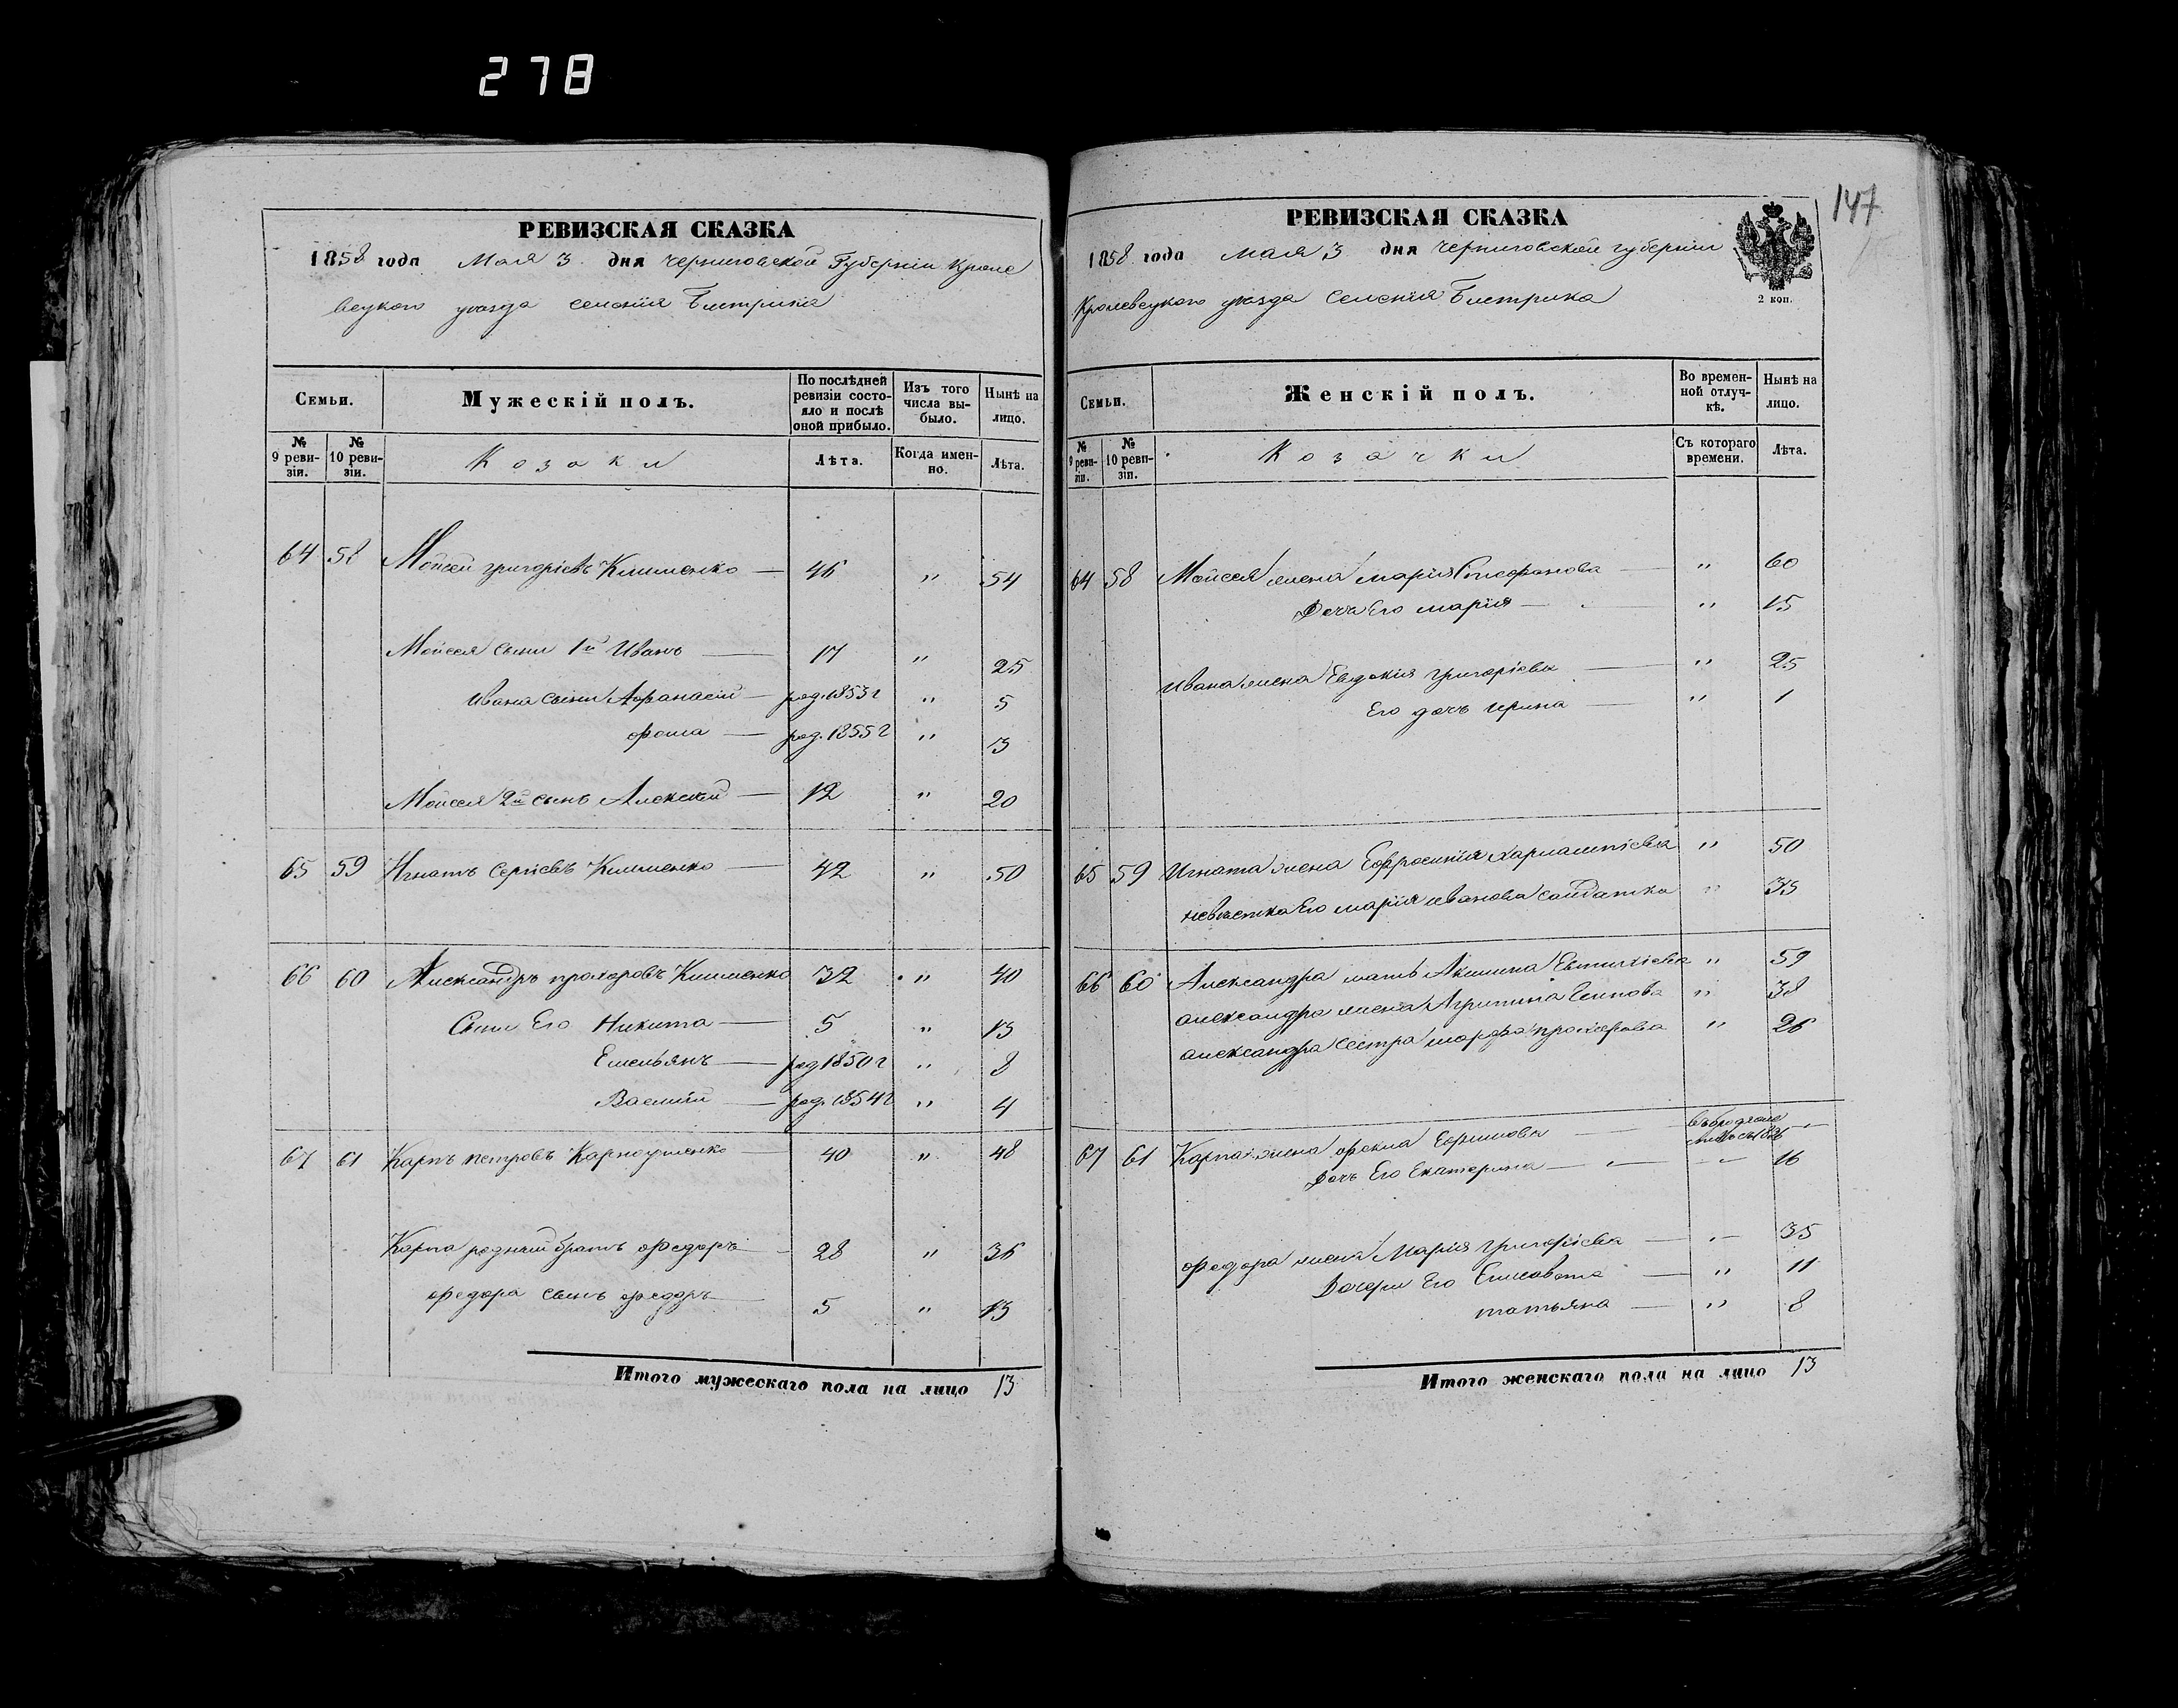 278
РЕВИЗСКАЯ СКАЗКА
1858 года Мая 3 дня Черниговской Губерніи Кроле
вецкого уезда селенія Быстрика
Семьи.
Мужескій полъ.
По послѣдней ревизіи состояло и послѣ оной прибыло.
Изъ того числа выбыло.
Ныңѣ на лицо.
№ 9 ревизіи.
№ 10 ревизіи.
Козаки
Лѣта.
Когда именно.
Лѣта.
64 58 Мойсей григоріевъ Клименко — 46 " 54
Мойсея сыни 1й Иванъ — 17 " 25
Ивана сыни Афанасій — род. 1853 г " 5
фома — род. 1855 г " 3
Мойсея 2й сынъ Алексей — 12 " 20
65 59 Игнатъ Сергіевъ Клименко — 42 " 50
66 60 Александръ прохоровъ Клименко 32 " 40
Сыни Его Никита — 5 " 13
Емельянъ — род 1850 г " 8
Василій — род. 1854 г " 4
67 61 Карпъ петровъ — 40 " 48
Карпа родный братъ федоръ — 28 " 36
федора сынъ федоръ — 5 " 13
Итого мужескаго пола на лицо 13
147
РЕВИЗСКАЯ СКАЗКА
1858 года мая 3 дня Черниговской губерніи
Кролевецкого уезда Селенія Быстрика
2 коп.
Семьи.
Женскій полъ.
Во временной отлучкѣ.
Нынѣ на лицо.
№ 9 ревизіи.
№ 10 ревизіи.
Козачки
Съ котораго времени.
Лѣта.
64 58 Мойсея жена марія Стефанова — " 60
Дочь Его марія — " 15
Ивана жена Евдокия григоріева — " 25
Его дочь ирина — " 1
65 59 Игната жена Ефросинія " 50
невестка Его марія иванова солдатка " 33
66 60 Александра мать Акилина Евтихіева " 59
александра жена Агрипина " 38
александра сестра марфа прохорова " 26
67 61 Карпа жена фекла Ефимова —
Дочь Его Екатерина — " — 16
федора жена Марія григоріева — " — 35
Дочери Его Елисавета — " 11
татьяна — " 8
Итого женскаго пола на лицо 13